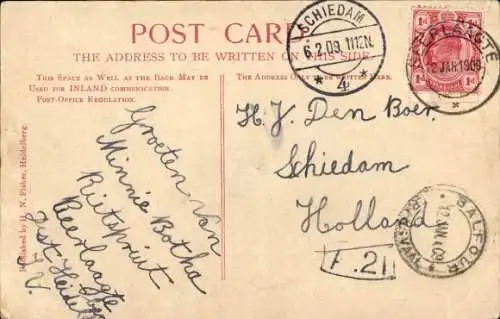 POST CARD.
THE ADDRESS TO BE WRITTEN ON THIS SIDE.
This Space as Well at the Back May be
Used for INLAND communication.
Post-Office Regulation.
The Address Only to be Written Here.
SCHIEDAM
6.2.09. 11-12N.
* 4 *
PLAATS
12 JAN 1909
1d 1d
Groeten van
Minnie Botha
Rietspruit
Beerlaagte
Dist Heidelberg
T. V.
H. J. Den Boer.
Schiedam
Holland
BALFOUR
JAN 09
TRANSVAAL
P. 21
Published by H. N. Fisher, Heidelberg